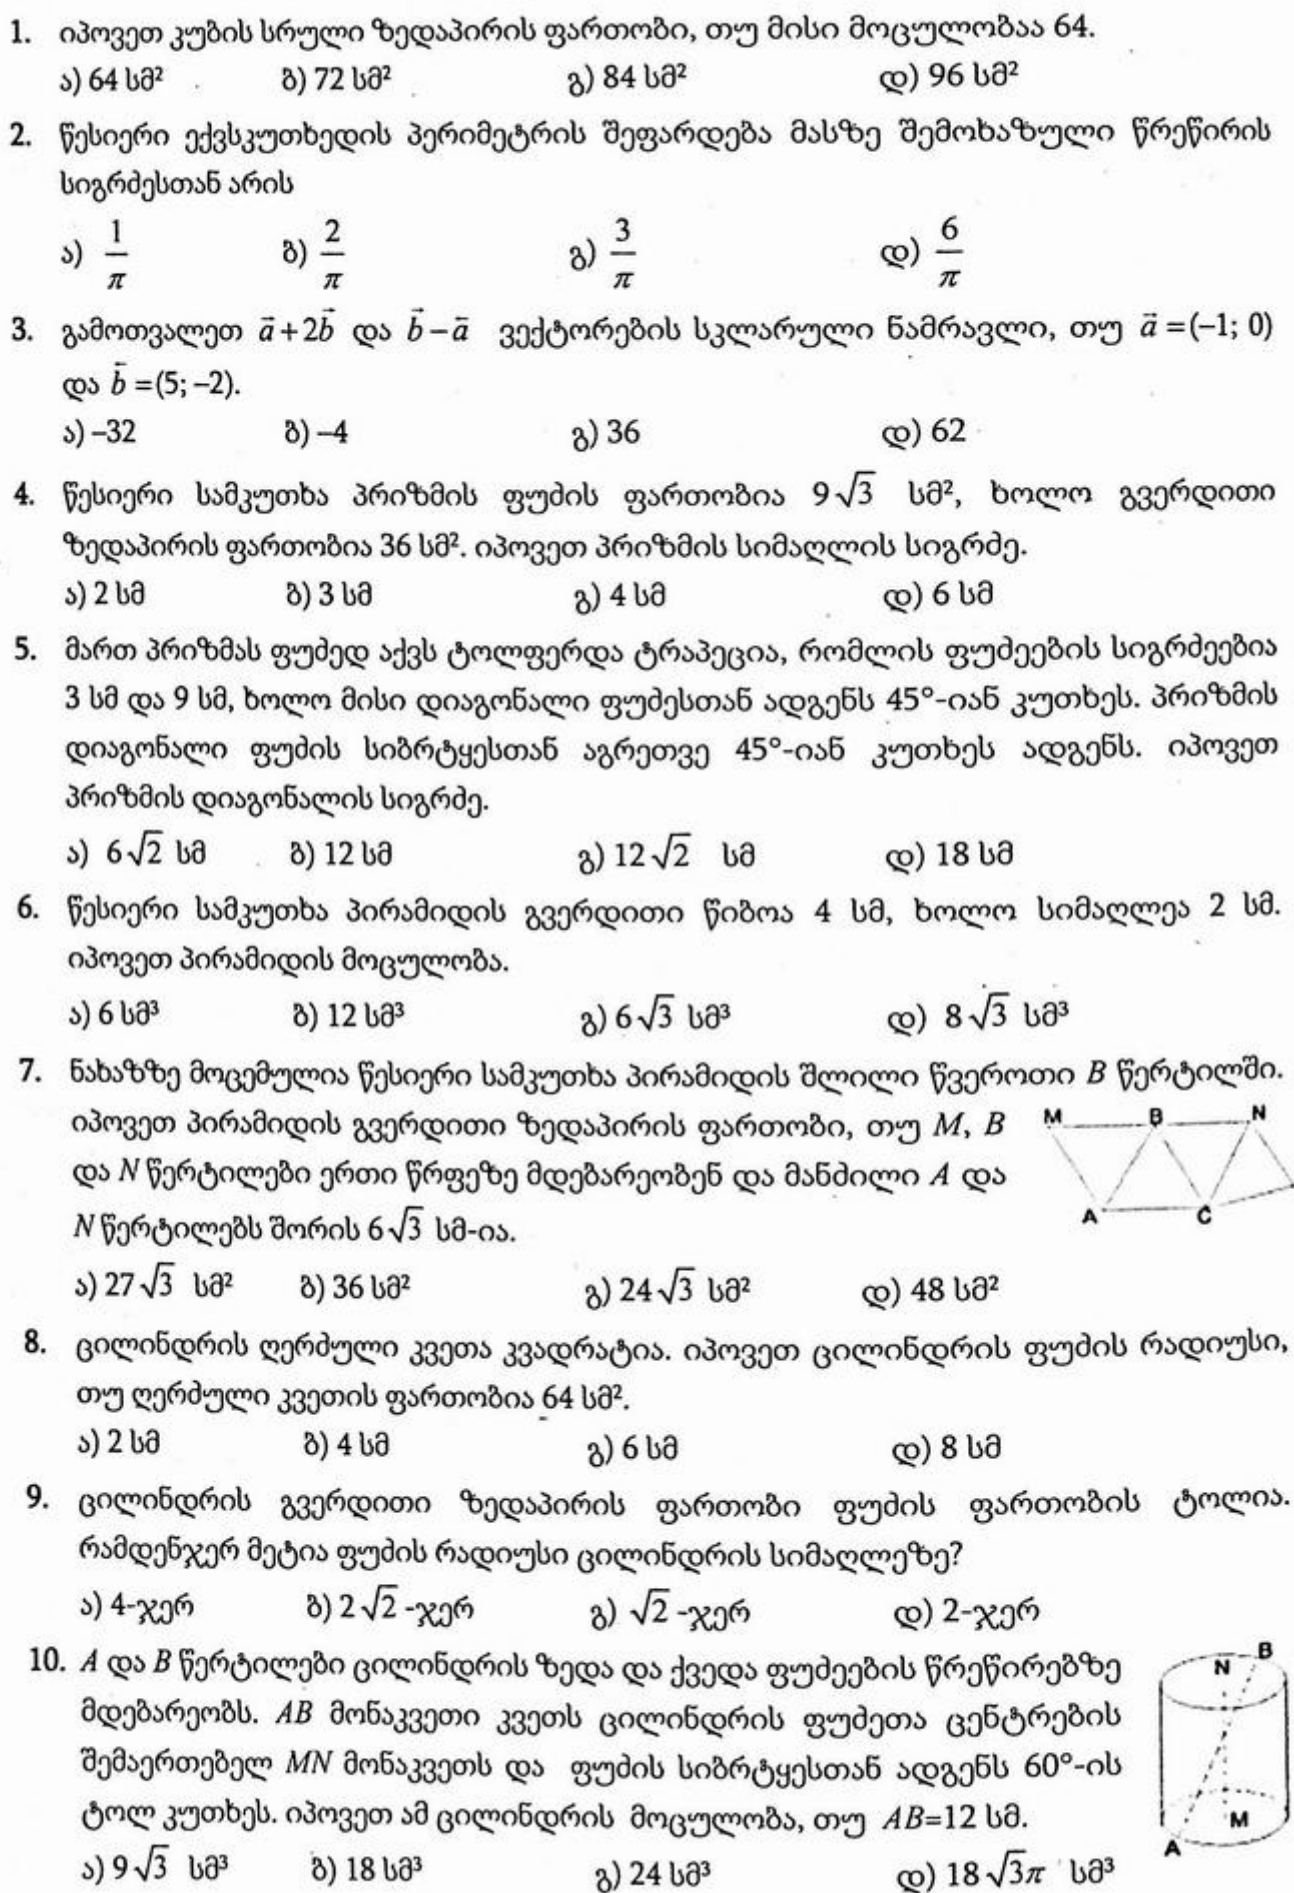 1. იპოვეთ კუბის სრული ზედაპირის ფართობი, თუ მისი მოცულობაა 64.
ა) 64 სმ² ბ) 72 სმ² გ) 84 სმ² დ) 96 სმ²
2. წესიერი ექვსკუთხედის პერიმეტრის შეფარდება მასზე შემოხაზული წრეწირის
სიგრძესთან არის
ა) 1/π ბ) 2/π გ) 3/π დ) 6/π
3. გამოთვალეთ a⃗+2b⃗ და b⃗−a⃗ ვექტორების სკლარული ნამრავლი, თუ a⃗=(–1; 0)
და b⃗=(5; –2).
ა) –32 ბ) –4 გ) 36 დ) 62
4. წესიერი სამკუთხა პრიზმის ფუძის ფართობია 9√3 სმ², ხოლო გვერდითი
ზედაპირის ფართობია 36 სმ². იპოვეთ პრიზმის სიმაღლის სიგრძე.
ა) 2 სმ ბ) 3 სმ გ) 4 სმ დ) 6 სმ
5. მართ პრიზმას ფუძედ აქვს ტოლფერდა ტრაპეცია, რომლის ფუძეების სიგრძეებია
3 სმ და 9 სმ, ხოლო მისი დიაგონალი ფუძესთან ადგენს 45°-იან კუთხეს. პრიზმის
დიაგონალი ფუძის სიბრტყესთან აგრეთვე 45°-იან კუთხეს ადგენს. იპოვეთ
პრიზმის დიაგონალის სიგრძე.
ა) 6√2 სმ ბ) 12 სმ გ) 12√2 სმ დ) 18 სმ
6. წესიერი სამკუთხა პირამიდის გვერდითი წიბოა 4 სმ, ხოლო სიმაღლეა 2 სმ.
იპოვეთ პირამიდის მოცულობა.
ა) 6 სმ³ ბ) 12 სმ³ გ) 6√3 სმ³ დ) 8√3 სმ³
7. ნახაზზე მოცემულია წესიერი სამკუთხა პირამიდის შლილი წვეროთი B წერტილში.
იპოვეთ პირამიდის გვერდითი ზედაპირის ფართობი, თუ M, B
და N წერტილები ერთი წრფეზე მდებარეობენ და მანძილი A და
N წერტილებს შორის 6√3 სმ-ია.
M B N
A C
ა) 27√3 სმ² ბ) 36 სმ² გ) 24√3 სმ² დ) 48 სმ²
8. ცილინდრის ღერძული კვეთა კვადრატია. იპოვეთ ცილინდრის ფუძის რადიუსი,
თუ ღერძული კვეთის ფართობია 64 სმ².
ა) 2 სმ ბ) 4 სმ გ) 6 სმ დ) 8 სმ
9. ცილინდრის გვერდითი ზედაპირის ფართობი ფუძის ფართობის ტოლია.
რამდენჯერ მეტია ფუძის რადიუსი ცილინდრის სიმაღლეზე?
ა) 4-ჯერ ბ) 2√2-ჯერ გ) √2-ჯერ დ) 2-ჯერ
10. A და B წერტილები ცილინდრის ზედა და ქვედა ფუძეების წრეწირებზე
მდებარეობს. AB მონაკვეთი კვეთს ცილინდრის ფუძეთა ცენტრების
შემაერთებელ MN მონაკვეთს და ფუძის სიბრტყესთან ადგენს 60°-ის
ტოლ კუთხეს. იპოვეთ ამ ცილინდრის მოცულობა, თუ AB=12 სმ.
N B
M
A
ა) 9√3 სმ³ ბ) 18 სმ³ გ) 24 სმ³ დ) 18√3π სმ³